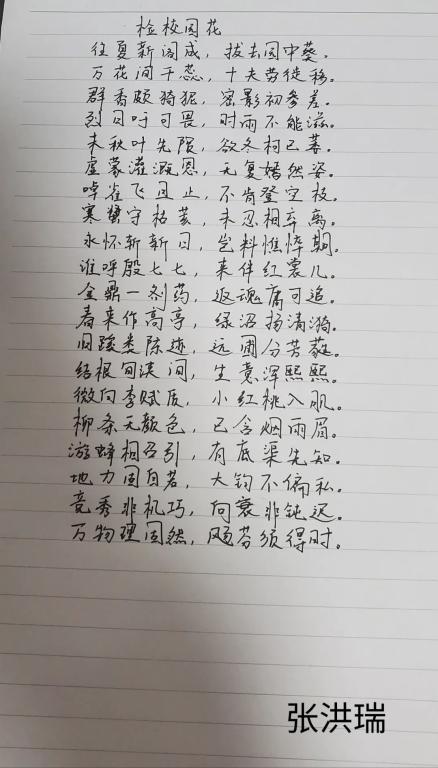 检校园花
往夏新阁成，拔去园中葵。
万花间千蕊，十夫劳徒移。
群香颇猗狔，密影初参差。
烈日吁可畏，时雨不能滋。
未秋叶先陨，欲冬柯已萎。
虚蒙灌溉恩，无复嫣然姿。
啅雀飞且止，不肯登空枝。
寒螀守枯荄，未忍相弃离。
永怀斩新日，岂料憔悴期。
谁呼殷七七，来伴红裳儿。
金鼎一剂药，返魂庸可追。
春来作高亭，绿沼扬清漪。
旧蹊类陈迹，远圃分芳蕤。
结根旬浃间，生意浑熙熙。
微向李赋质，小红桃入肌。
柳条无颜色，已含烟雨眉。
游蜂相召引，有底渠先知。
地力固自若，大钧不偏私。
竞秀非机巧，向衰非钝迟。
万物理固然，飏芬须得时。
张洪瑞